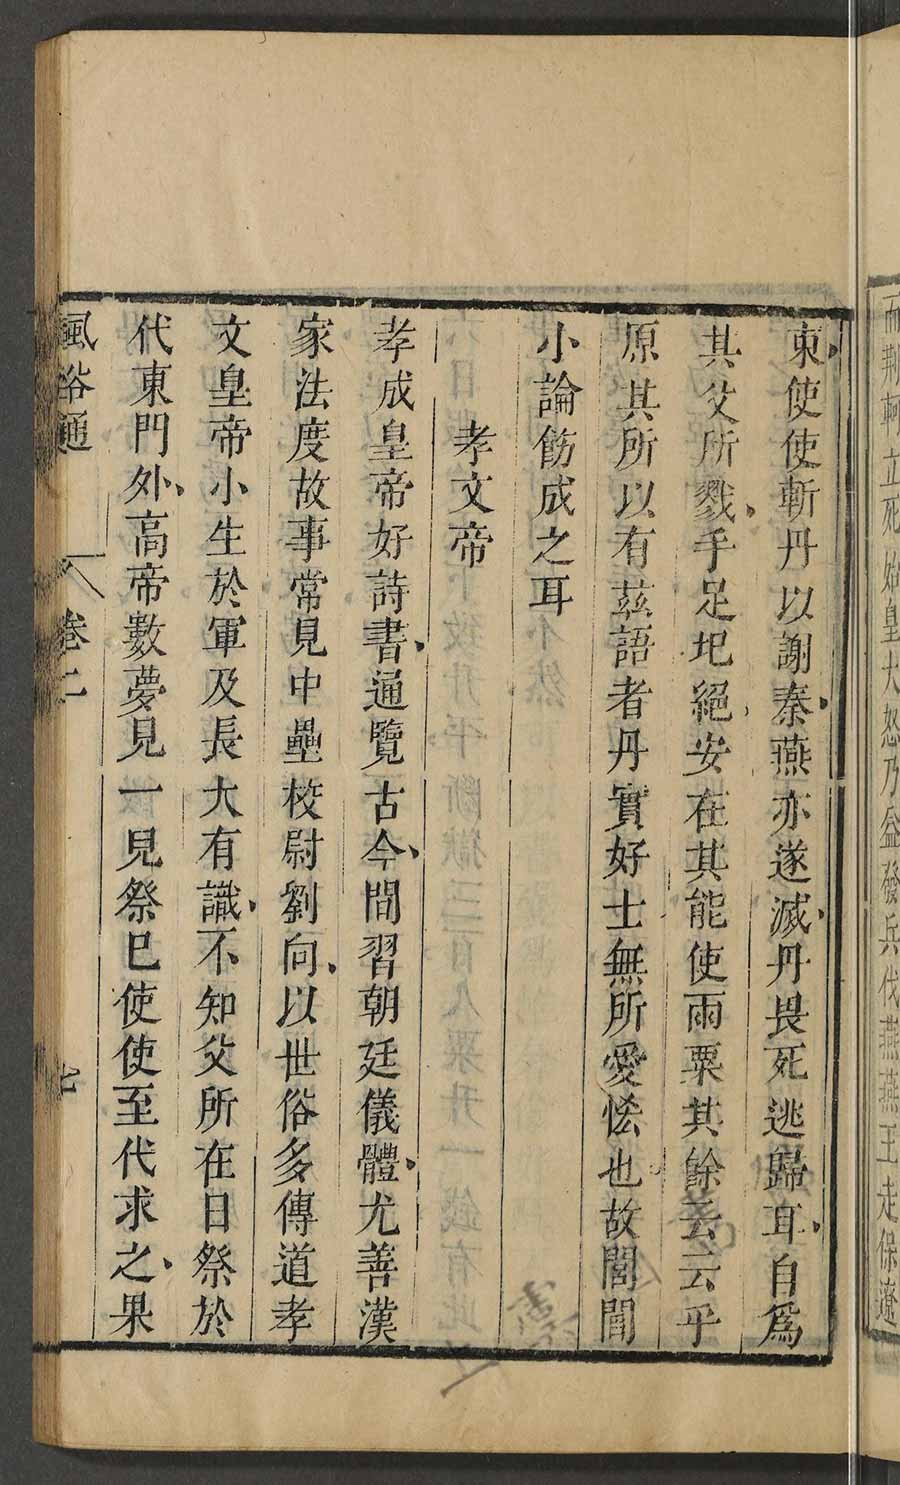 而荆軻立死始皇大怒乃益發兵伐燕燕王走保遼
東使使斬丹以謝秦燕亦遂滅丹畏死逃歸耳自爲
其父所戮手足圯絕安在其能使雨粟其餘云云乎
原其所以有茲語者丹實好士無所愛恡也故閭閻
小論飭成之耳
孝文帝
孝成皇帝好詩書通覽古今間習朝廷儀體尤善漢
家法度故事常見中壘校尉劉向以世俗多傳道孝
文皇帝小生於軍及長大有識不知父所在日祭於
代東門外高帝數夢見一兒祭已使使至代求之果
風俗通 卷二 七